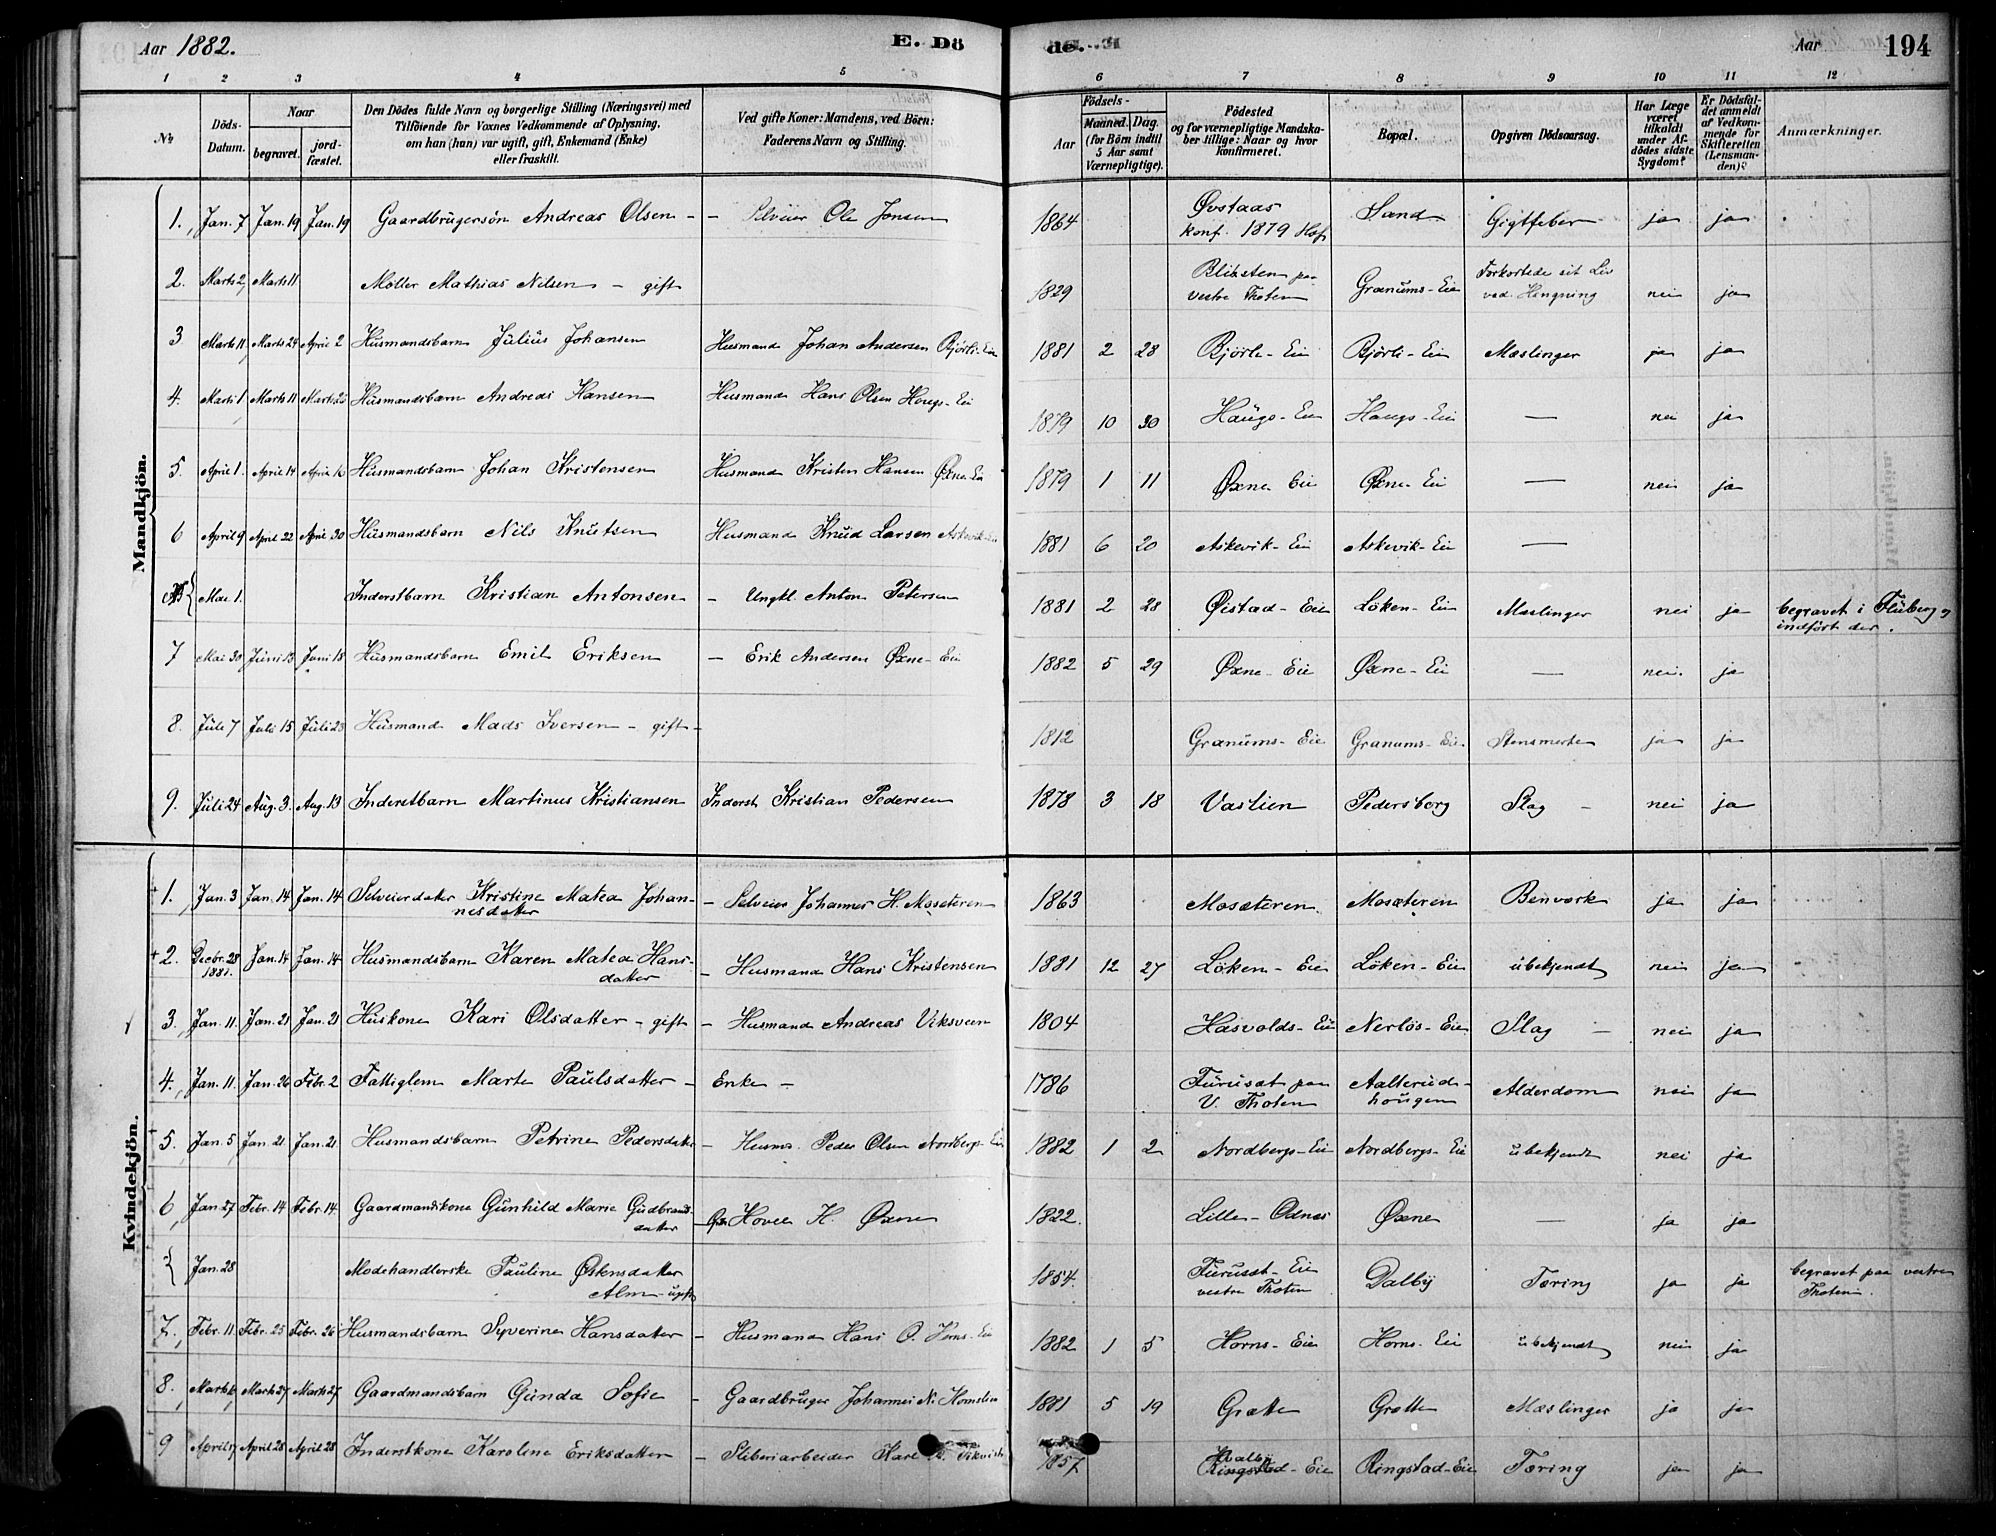 Aar 1882. E. Dö de. Aar 194
1 2 3 4 5 6 7 8 9 10 11 12
№ Döds-Datum. Naar begravet. jordfæstet. Den Dödes fulde Navn og borgerlige Stilling (Næringsvei) med Tilföiende for Voxnes Vedkommende af Oplysning, om han (hun) var ugift, gift, Enkemand (Enke) eller fraskilt. Ved gifte Koner: Mandens, ved Börn: Faderens Navn og Stilling. Födsels- Aar Maaned. Dag. (for Börn indtil 5 Aar samt Værnepligtige). Födested og for værnepligtige Mandskaber tillige: Naar og hvor konfirmeret. Bopæl. Opgiven Dödsaarsag. Har Læge været tilkaldt under Afdödes sidste Sygdom? Er Dödsfaldet anmeldt af Vedkommende for Skifteretten (Lensmanden)? Anmærkninger.
Mandkjön.
1. Jan. 7 Jan. 19 Jan. 19 Gaardbrugersön Andreas Olsen - - Selveier Ole Jonsen 1864 Øvstaas konf. 1879 Hof Sand Gigtfeber ja ja
2. Marts 2 Marts 11 Møller Mathias Nilsen - gift 1829 Blixsten paa vestre Thoten Granums-Eie Forkortede sit Liv ved Hængning nei ja
3 Marts 11 Marts 24 April 2 Husmandsbarn Julius Johansen Husmand Johan Andersen Bjørli-Eie 1881 2 28 Bjørli-Eie Bjørli-Eie Mæslinger ja ja
4. Marts 1 Marts 11 Marts 26 Husmandsbarn Andreas Hansen Husmand Hans Olsen Hougs-Eie 1879 10 30 Haugs-Eie Haugs-Eie — nei ja
5. April 1. April 14 April 16 Husmandsbarn Johan Kristensen Husmand Kristen Hansen Øxne-Eie 1879 1 11 Øxne Eie Øxne-Eie — nei ja
6 April 9 April 22 April 30 Husmandsbarn Nils Knutsen Husmand Knud Larsen Askevik-Eie 1881 6 20 Askevik-Eie Askevik-Eie —
Mai 1. Inderstbarn Kristian Antonsen - Ungkl. Anton Petersen 1881 2 28 Øistad-Eie Løken-Eie Mæslinger nei ja begravet i Fluberg og indført der.
7 Mai 30 Juni 13 Juni 18 Husmandsbarn Emil Eriksen - Erik Andersen Øxne-Eie 1882 5 29 Øxne-Eie Øxne-Eie — nei. ja
8. Juli 7 Juli 15 Juli 23 Husmand Mads Iversen - gift - 1812 Granums-Eie Granums-Eie Stensmerte ja ja
9. Juli 24 Aug. 3. Aug. 13 Inderstbarn Martinus Kristiansen Inderst Kristian Pedersen 1878 3 18 Vastien Pedersborg Slag - nei ja
Kvindekjön.
1. Jan. 3 Jan. 14 Jan. 14 Selveierdatter Kristine Matea Johannesdatter - Selveier Johannes H. Mosæteren 1863 Mosæteren Mosæteren Benværk ja ja
2. Decbr. 28 1881. Jan. 14 Jan. 14 Husmandsbarn Karen Matea Hansdatter - Husmand Hans Kristensen 1881 12 27 Løken-Eie Løken-Eie ubekjendt nei ja
3. Jan. 11. Jan. 21 Jan. 21 Huskone Kari Olsdatter - gift - Husmand Andreas Viksveen 1804 Hasvolds-Eie Nerløs-Eie Slag - nei ja
4. Jan. 11. Jan. 26 Febr. 2 Fattiglem Marte Paulsdatter - Enke - 1786 Furuset paa V. Thoten Aalterudhougen Alderdom nei ja
5. Jan. 5 Jan. 21 Jan. 21 Husmandsbarn Petrine Pedersdatter - Husm. Peder Olsen Nordbergs-Eie 1882 1 2 Nordbergs-Eie Nordbergs-Eie ubekjendt nei ja
6 Jan. 27 Febr. 14 Febr. 14. Gaardmandskone Gunhild Marie Gudbrandsdatter Hovel H. Øxne 1822. Lille-Odnes Øxne — ja ja
Jan. 28 Modehandlerske Pauline Østensdatter Alm - ugift 1854. Furuset-Eie vestre Thoten Dalby Tæring ja ja begravet paa vestre Thoten.
7. Febr. 11 Febr. 25 Febr. 26 Husmandsbarn Syverine Hansdatter - Husmand Hans O. Horns-Eie 1882 1 5 Horns-Eie Horns-Eie ubekjendt nei ja
8. Marts Marts 27 Marts 27 Gaardmandsbarn Gunda Sofie - Gaardbruger Johannes N. Homelien 1881 5 19 Grøtte Grøtte Mæslinger ja ja
9 April 17 April 28 April 28 Inderstkone Karoline Eriksdatter - Sliberiarbeider Karl 1857 Hvalby Ringstad-Eie Ringstad-Eie Tæring ja ja